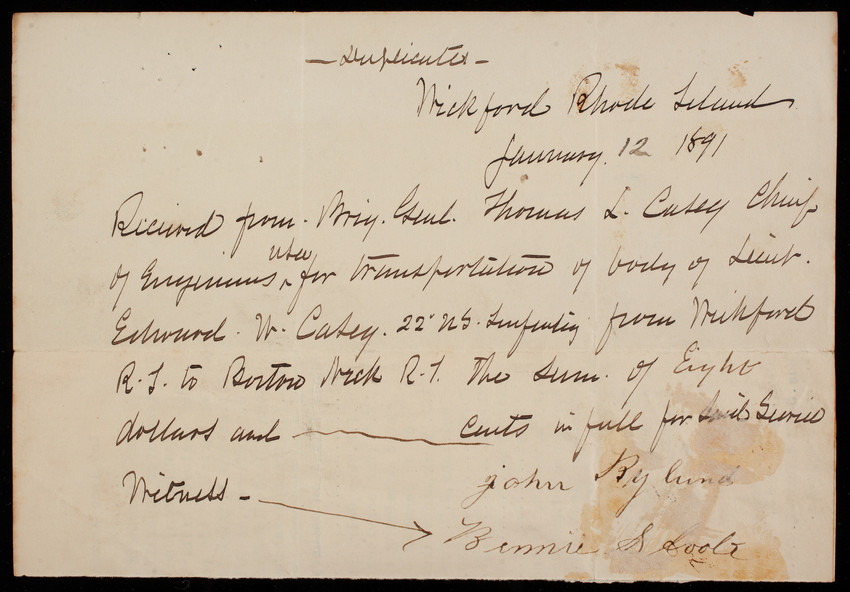 — Duplicate —
Wickford Rhode Island
January 12 1891
Received from Brig. Genl. Thomas L. Casey Chief
of Engineers, USA for transportation of body of Lieut.
Edward W. Casey. 22" US. Infantry from Wickford
R.I. to Boston Neck R.I. the sum of Eight
dollars and —— cents in full for said Service
john Rylund
Witness — Bennie S